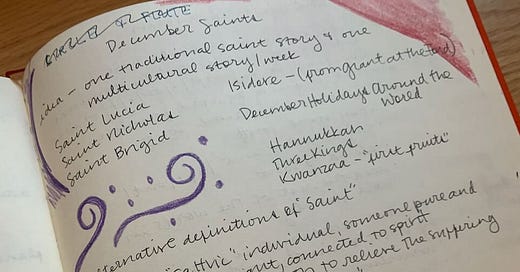 December Saints
idea - one traditional saint story & one
multicultural story/week
Saint Lucia
Saint Nicholas
Saint Brigid
Isidore - (from grant at the end)
December Holidays Around the
World
Hannukkah
Three Kings
Kwanzaa - "first fruits"
alternative definitions of "Saint"
individual, someone pure and
connected to spirit
to relieve the suffering